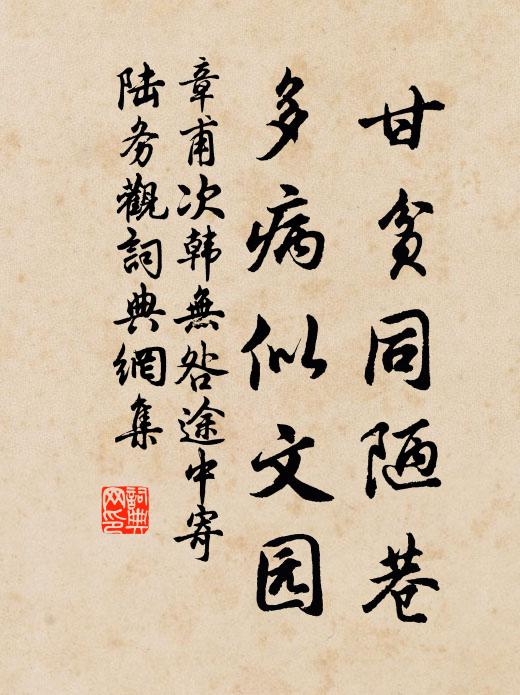 甘贫同陋巷
多病似文园
章甫次韩無咎途中寄
陆务觀詞典網集
詞典網印